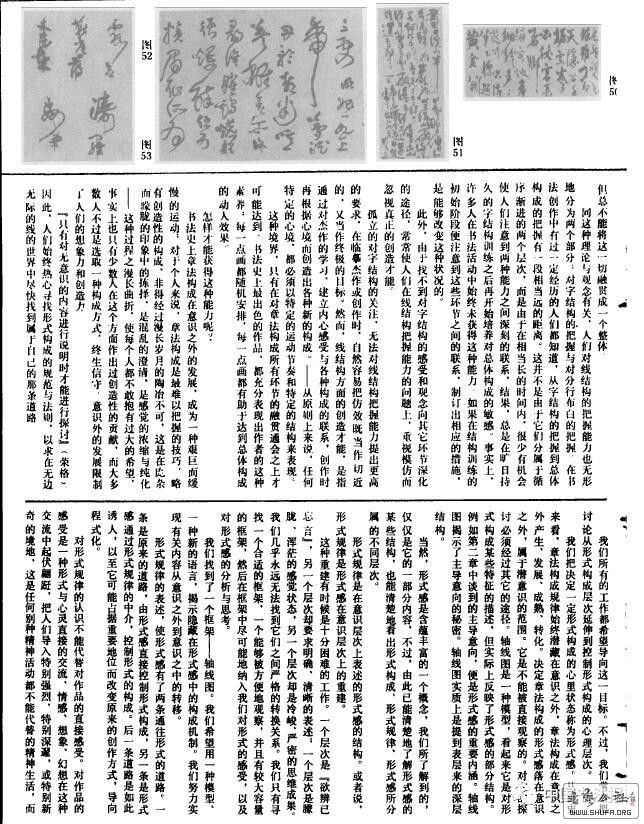 图52
图53
图51
图50
但总不能将这一切融贯成一个整体
同这种理论与观念有关,人们对线结构的把握能力也无形
地分为两个部分:对字结构的把握与对分行布白的把握。在书
法创作中有过一定经历的人们都知道,从字结构的把握到总体
构成的把握有一段相当远的距离。这并不是由于它们分属于循
序渐进的两个层次,而是由于在相当长的时间内,很少有机会
使人们注意到两种能力之间深刻的联系,结果,总是在旷日持
久的字结构训练之后再开始培养对总体构成的敏感。事实上,
许多人在书法活动中始终未获得这种能力。如果在结构训练的
初始阶段便注意到这些环节之间的联系,制订出相应的措施,
是能够改变这种状况的。
此外,由于找不到对字结构的感受和观念向其它环节深化
的途径,常常使人们在线结构把握能力的问题上,重视模仿而
忽视真正的创造才能。
孤立的对字结构的关注,无法对线结构把握能力提出更高
的要求,在临摹杰作或创作时,自然容易把仿效既当作切近
的,又当作终极的目标。然而,线结构方面的创造才能,是指
通过对杰作的学习,建立内心感受与各种构成的联系,创作时
再根据心境而创造出各种新的构成——从原则上来说,任何
特定的心境,都必须以特定的运动节奏和特定的结构来表现。
这种境界,只有在对章法构成所有环节的融贯通会之上才
可能达到。书法史上最出色的作品,都充分表现出作者的这种
素养:每一点画都随机安排,每一点画都有助于达到总体构成
的动人效果
怎样才能获得这种能力呢?
书法史上章法构成在意识之外的发展,成为一种艰巨而缓
慢的运动,对于个人来说,章法构成是最难以把握的技巧,略
有创造性的构成,非得经过漫长岁月的陶冶不可,这是在芜杂
而朦胧的印象中的拣择,是混乱的澄清,是感觉的浓缩与纯化
——这种过程之漫长曲折,使每个人都不敢抱有过大的希望,
事实上也只有少数人在这个方面作出过创造性的贡献,而大多
数人不过是选取一种构成方式,终生信守。意识外的发展限制
了人们的想象力和创造力。
『只有对无意识的内容进行说明时才能进行探讨』(荣格)
因此,人们始终热心寻找形式构成的规范与法则,以求在无边
无际的线的世界中尽快找到属于自己的那条道路
我们所有的工作都希望导向这一目标。不过,我们
讨论从形式构成层次延伸到控制形式构成的心理层次。
我们把决定一定形式构成的心里状态称为形式感。
来看,章法构成规律始终潜藏在意识之外,章法构成在意识之
外产生、发展、成熟、转化。决定章法构成的形式感落在意识
之外,属于潜意识的范围。它是不能被直接观察的。对它的探
讨必须经过其它的途径。轴线图是一种模型,看起来它是对形
式构成某些特征的描述,但实际上反映了形式感的部分结构。
例如第二章中谈到的主导意向,便是形式感的重要内涵。轴线
图揭示了主导意向的秘密。轴线图实质上是提到表层来的深层
结构。
当然,形式感是含蕴丰富的一个概念,我们所了解到的,
仅仅是它的一部分内容,不过,由此已能清楚地了解形式感的
某些结构,也能清楚地看出形式构成、形式规律、形式感所分
属的不同层次。
形式规律是在意识层次上表述的形式感的结构。或者说,
形式规律是形式感在意识层次上的重建。
这种重建有时候是十分困难的工作。一个层次是『欲辨已
忘言』,另一个层次却要求明确、清晰的表述;一个层次是朦
胧、浑茫的感觉状态,另一个层次却是冷峻、严密的思维成果。
我们几乎永远无法找到它们之间严格的转换关系。我们只有寻
找一个合适的框架,一个能够被方便地观察,并且有较大容量
的框架,然后在框架中尽可能地纳入我们对形式的感受,以及
对形式感的分析与思考。
我们找到了一个框架——轴线图。我们希望用一种模型,
一种新的语言,揭示隐藏在形式感中的构成机制。我们努力实
现有关内容从意识之外到意识之中的转移。
形式规律的表述,使形式感有了两条通往形式的道路。一
条是原来的道路,由形式感直接控制形式构成,另一条是形式
感通过形式规律的中介,控制形式的构成。后一条道路是如此
诱人,以至它可能占据重要地位而改变原来的创作方式,导向
程式化。
对形式规律的认识不能代替对作品的直接感受。对作品的
感受是一种形式与心灵直接的交流,情感、想象、幻想在这种
交流中起伏翩跹,把人们导入特别强烈、特别深邃、或特别新
奇的境地,这是任何别种精神活动都不能代替的精神生活,而
WWW.SHUFA.ORG